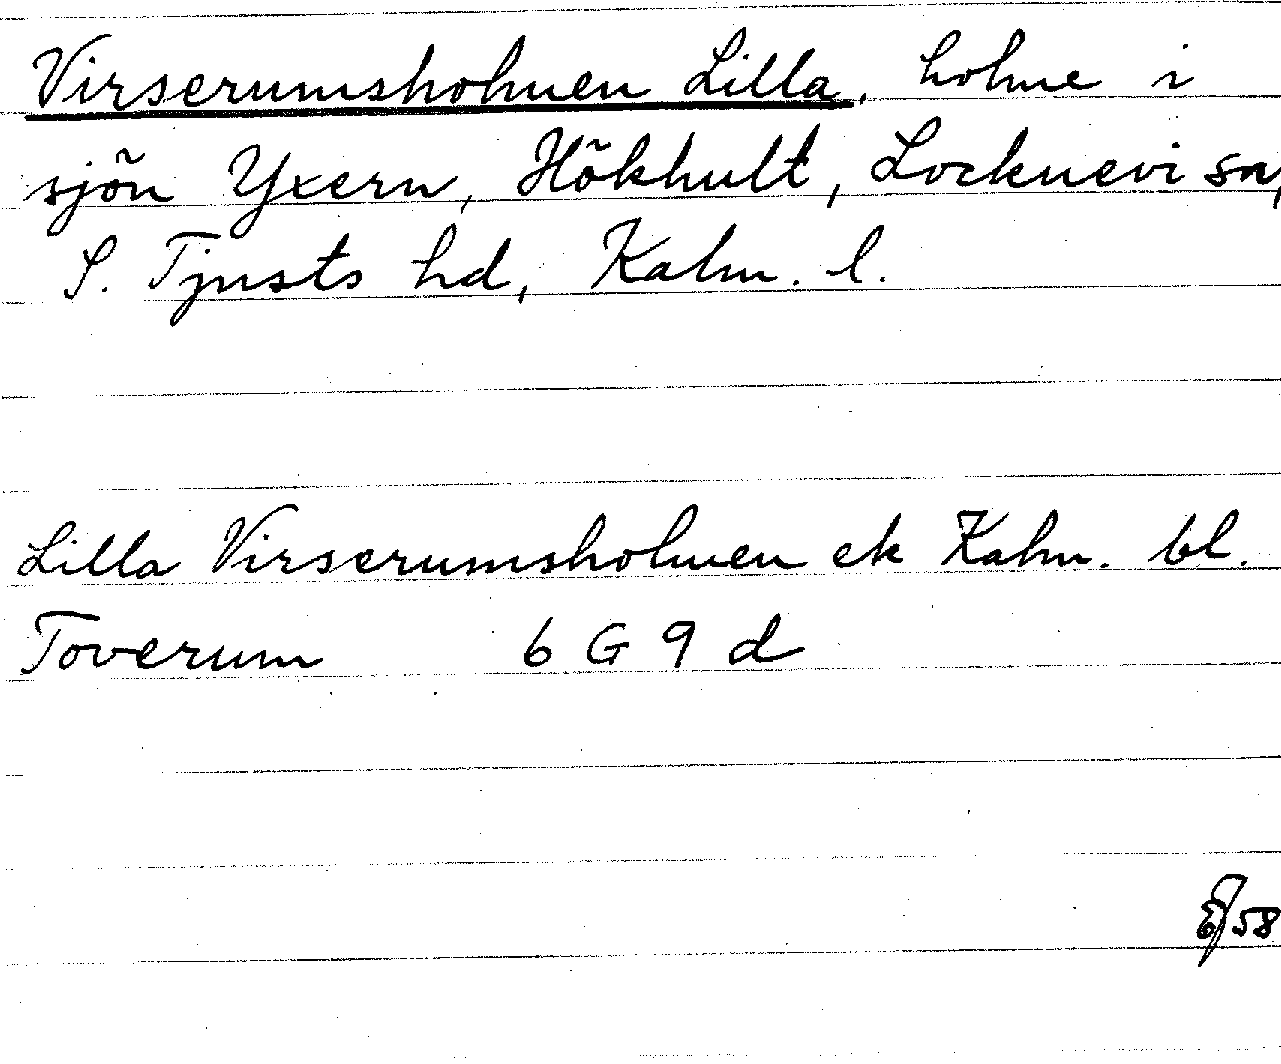 Virserumsholmen Lilla, holme i
sjön Yxern, Hökhult, Locknevi sn,
S. Tjusts hd, Kalm. l.
Lilla Virserumsholmen ek Kalm. bl.
Toverum 6 G 9 d
58